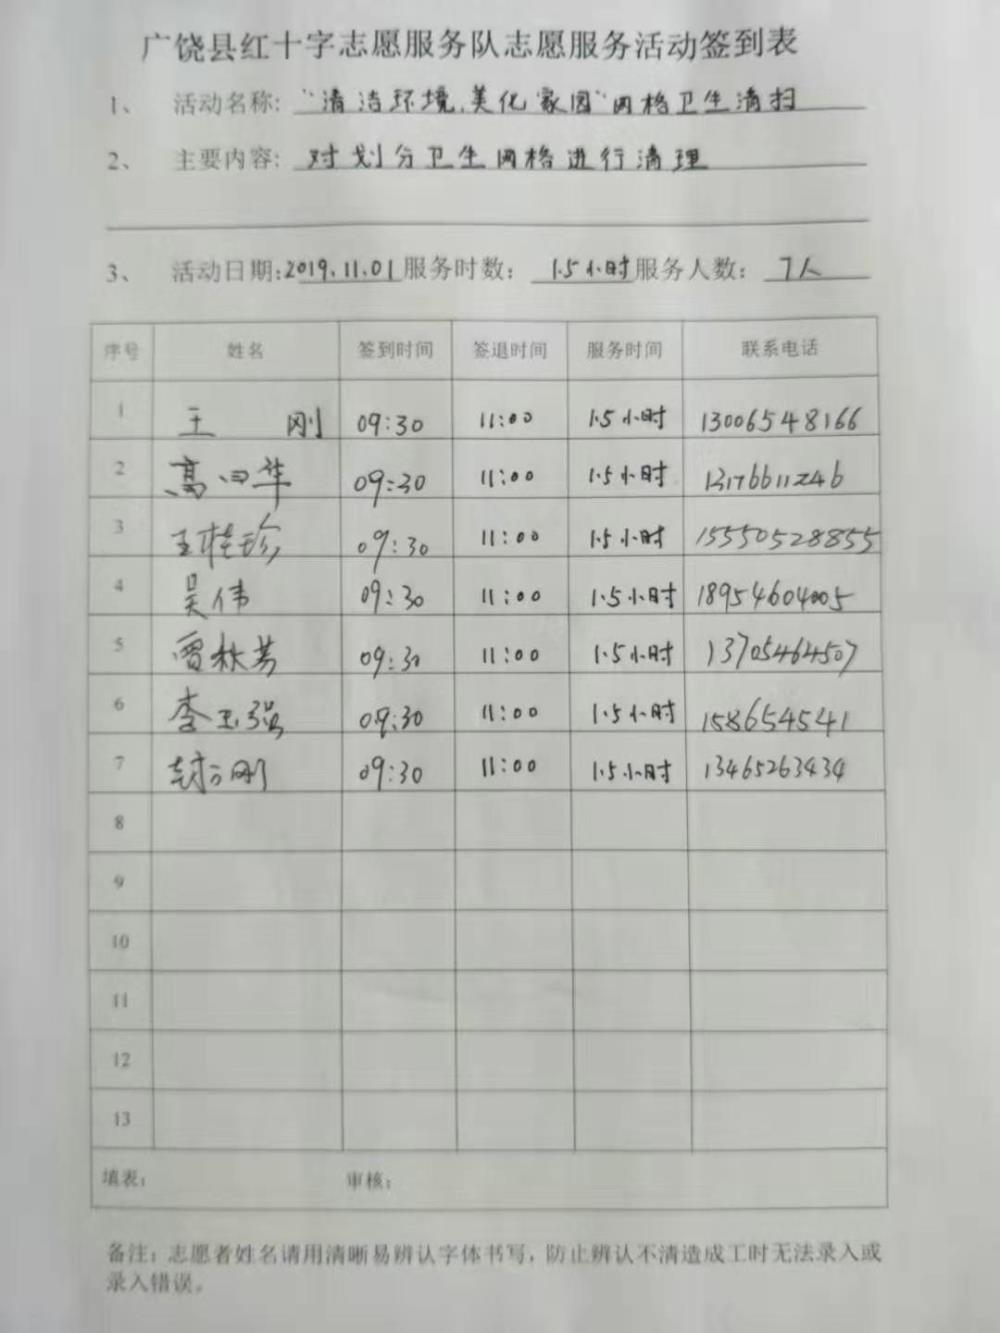 广饶县红十字志愿服务队志愿服务活动签到表
1、 活动名称: "清洁环境、美化家园"网格卫生清扫
2、 主要内容: 对划分卫生网格进行清理
3、 活动日期:2019.11.01服务时数: 1.5小时服务人数: 7人
序号 姓名 签到时间 签退时间 服务时间 联系电话
1 王 刚 09:30 11:00 1.5小时 13006548166
2 高 华 09:30 11:00 1.5小时 13176611246
3 王桂珍 09:30 11:00 1.5小时 15550528855
4 吴伟 09:30 11:00 1.5小时 18954604005
5 曹秋芳 09:30 11:00 1.5小时 13705464507
6 李玉强 09:30 11:00 1.5小时 1586545541
7 刚 09:30 11:00 1.5小时 13465263434
8
9
10
11
12
13
填表: 审核:
备注:志愿者姓名请用清晰易辨认字体书写,防止辨认不清造成工时无法录入或
录入错误。